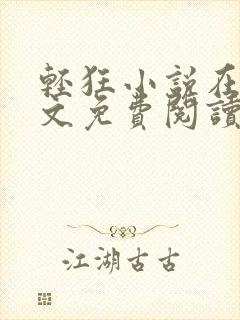 輕狂小說在
文免費閱讀
江湖古古